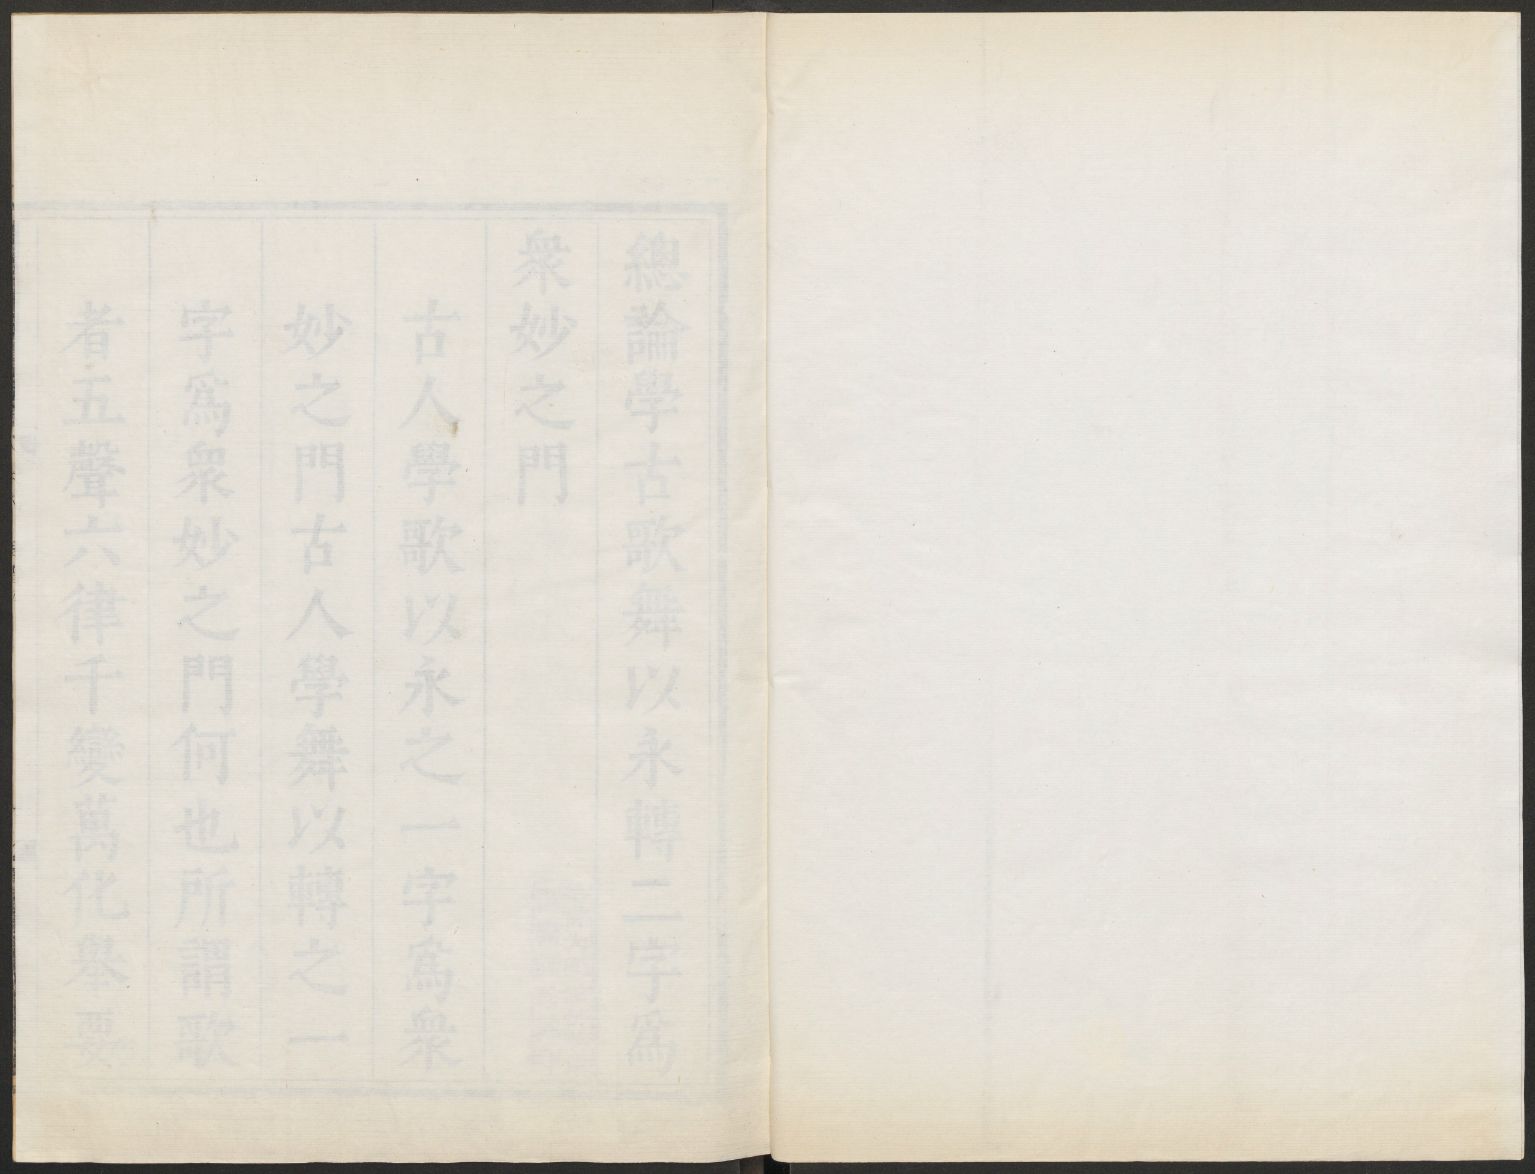 總論學古歌舞以永轉二字爲
衆妙之門
古人學歌以永之一字爲衆
妙之門古人學舞以轉之一
字爲衆妙之門何也所謂歌
者五聲六律千變萬化舉要